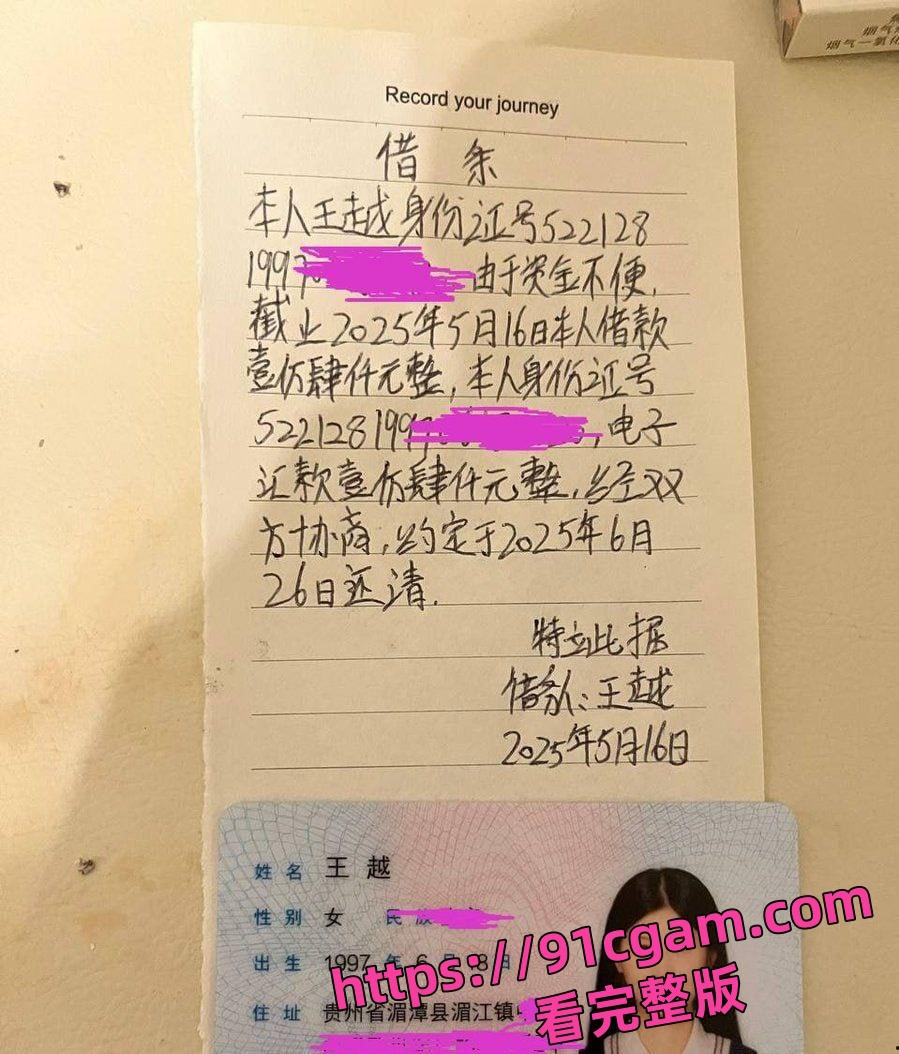 烟气
烟气一氧化
Record your journey
借条
本人王越身份证号522128
1997 由于资金不便,
截止2025年5月16日本人借款
壹仿肆仟元整,本人身份证号
522128199 ,电子
汇款壹仿肆仟元整,经双
方协商,约定于2025年6月
26日还清.
特立此据
借条人:王越
2025年5月16日
姓名 王越
性别 女 民族
出生 1997 年 6 月 18 日
住址 贵州省湄潭县湄江镇
https://91cgam.com
看完整版